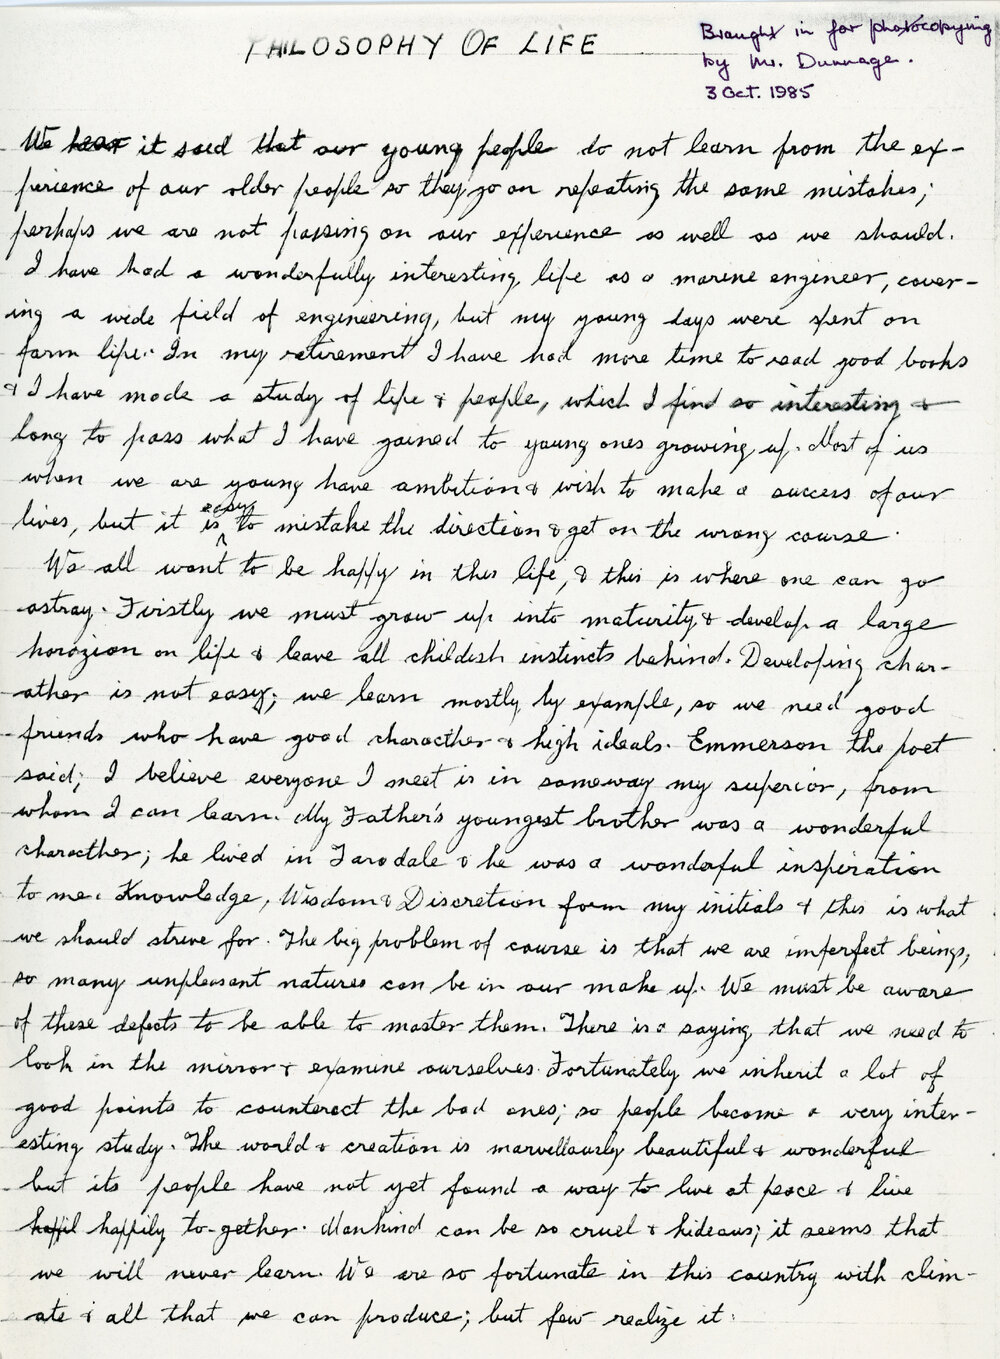 PHILOSOPHY OF LIFE
Brought in for photocopying
by Mr. Dunnage.
3 Oct. 1985
We hear it said that our young people do not learn from the ex-
perience of our older people so they go on repeating the same mistakes;
perhaps we are not passing on our experience as well as we should.
I have had a wonderfully interesting life as a marine engineer, cover-
ing a wide field of engineering, but my young days were spent on
farm life. In my retirement I have had more time to read good books
& I have made a study of life & people, which I find so interesting &
long to pass what I have gained to young ones growing up. Most of us
when we are young have ambition & wish to make a success of our
lives, but it is easy to mistake the direction & get on the wrong course.
We all want to be happy in this life, & this is where one can go
astray. Firstly we must grow up into maturity & develop a large
horozion on life & leave all childish instincts behind. Developing char-
ather is not easy; we learn mostly by example, so we need good
friends who have good characther & high ideals. Emmerson the poet
said; I believe everyone I meet is in someway my superior, from
whom I can learn. My Father's youngest brother was a wonderful
characther; he lived in Tarodale & he was a wonderful inspiration
to me. Knowledge, Wisdom & Discretion form my initials & this is what
we should strive for. The big problem of course is that we are imperfect beings,
so many unpleasant natures can be in our make up. We must be aware
of these defects to be able to master them. There is a saying that we need to
look in the mirror & examine ourselves. Fortunately we inherit a lot of
good points to counterect the bad ones; so people become a very inter-
esting study. The world & creation is marvellously beautiful & wonderful
but its people have not yet found a way to live at peace & live
happil happily to-gether. Mankind can be so cruel & hideous; it seems that
we will never learn. We are so fortunate in this country with clim-
ate & all that we can produce; but few realize it.